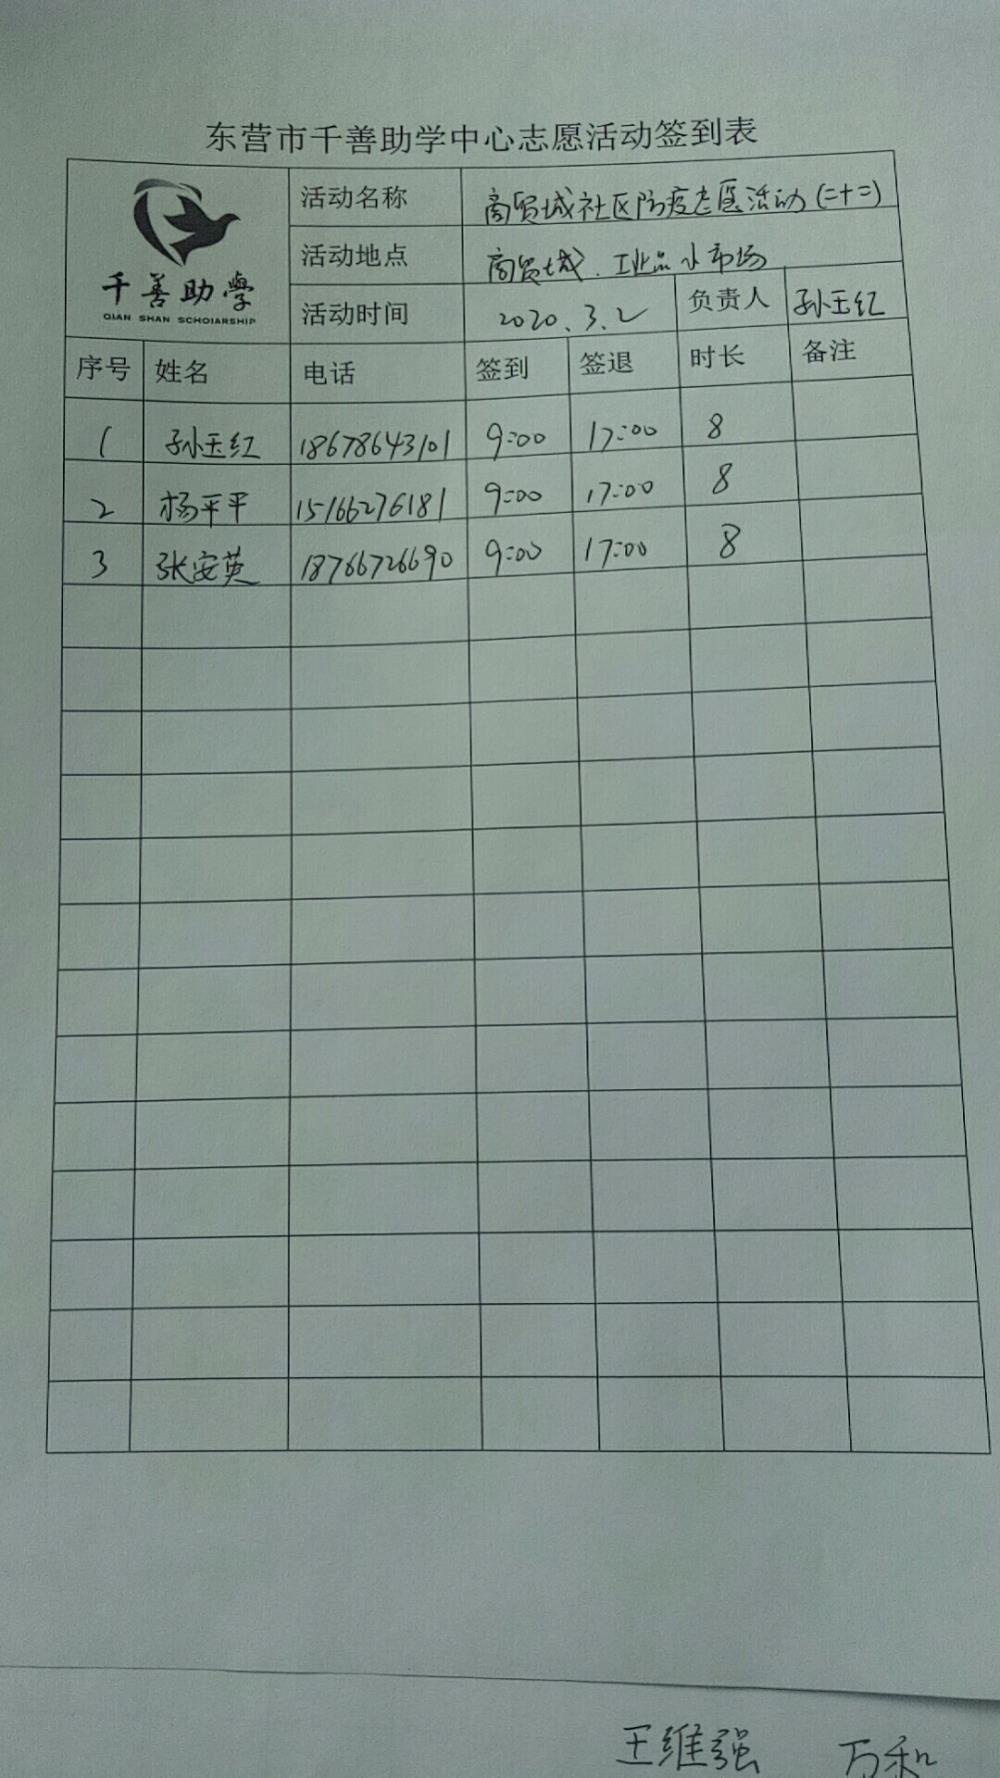 东营市千善助学中心志愿活动签到表
千善助学
QIAN SHAN SCHOIARSHIP
活动名称 商贸城社区防疫志愿活动(二十二)
活动地点 商贸城、工业品小市场
活动时间 2020.3.2 负责人 孙玉红
序号 姓名 电话 签到 签退 时长 备注
1 孙玉红 18678643101 9:00 17:00 8
2 杨平平 15166276181 9:00 17:00 8
3 张安英 18766726690 9:00 17:00 8
王维强 万和